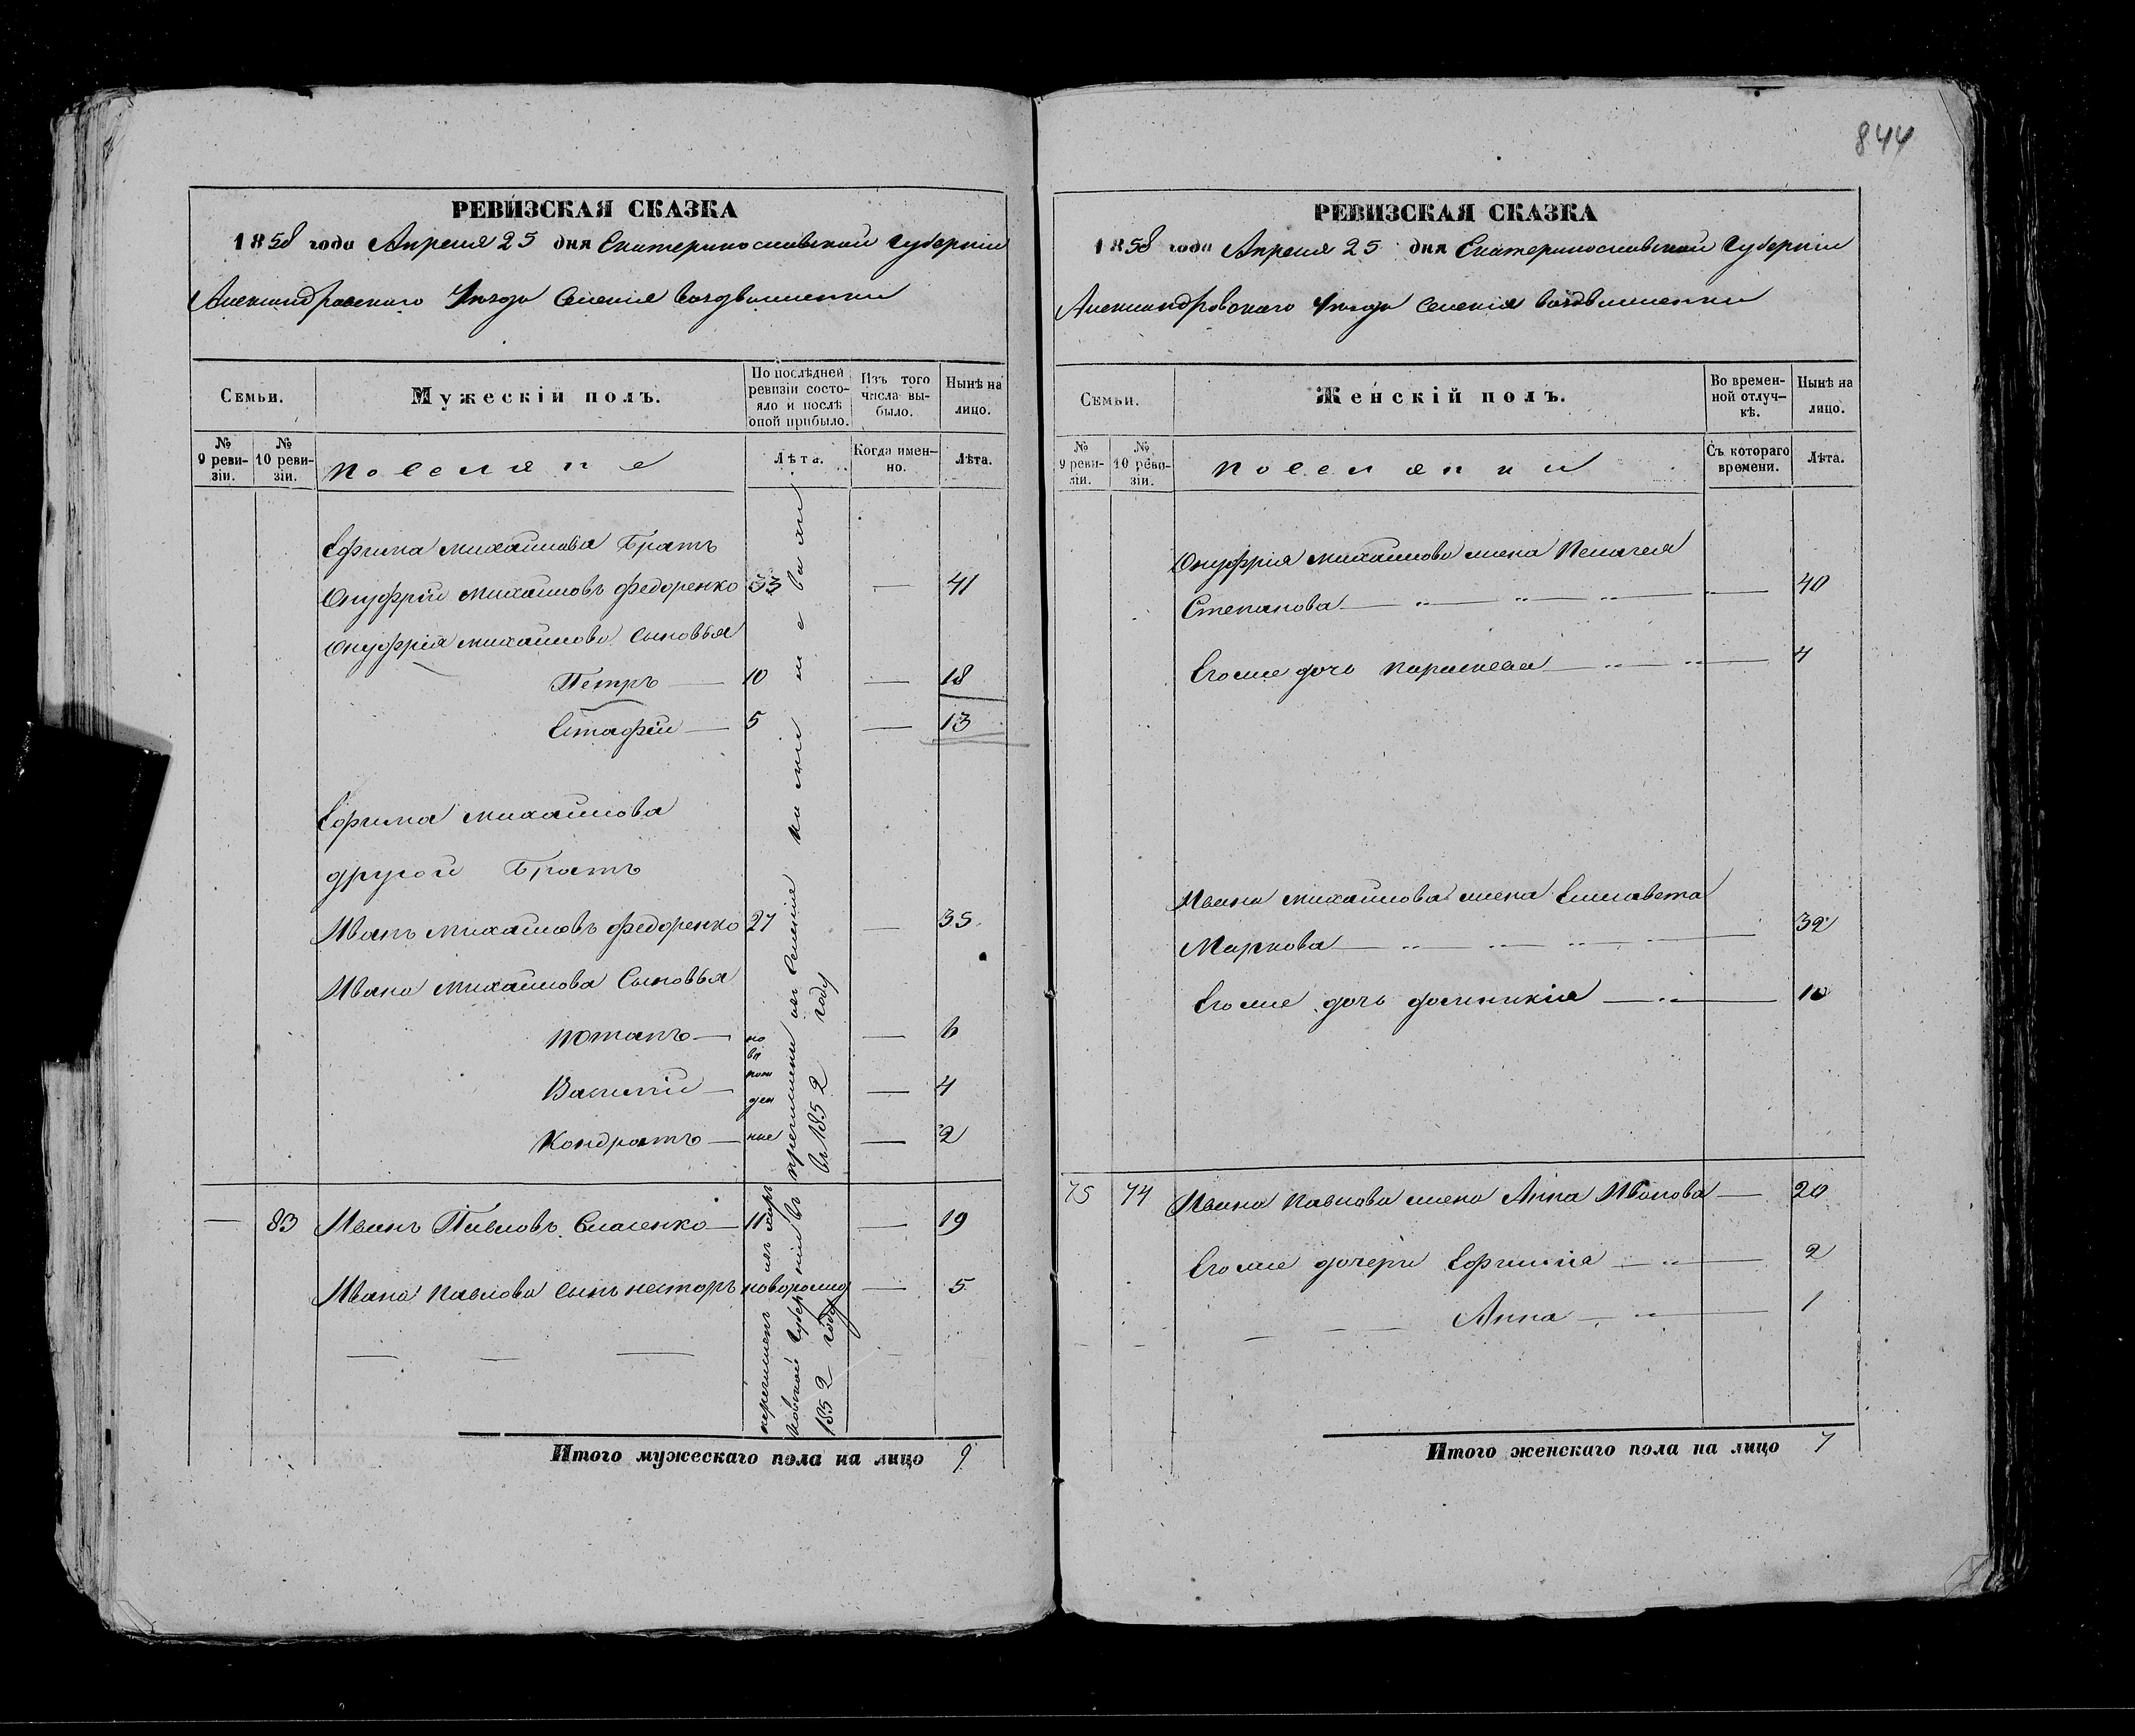 844
РЕВИЗСКАЯ СКАЗКА
1858 года Апреля 25 дня Екатеринославской Губернии
Александровского Уезда Селения Воздвиженки
Семьи.
Мужескій полъ.
По послѣдней ревизіи состояло и послѣ оной прибыло.
Изъ того числа выбыло.
Нынѣ на лицо.
№ 9 ревизіи.
№ 10 ревизіи.
Поселяне
Лѣта.
Когда именно.
Лѣта.
Ефима Михайлова Братъ
Онуфрій Михайловъ Федоренко 33 — 41
Онуфрія Михайлова Сыновья
Петръ — 10 — 18
Естафій — 5 — 13
Ефима Михайлова
другой Братъ
Иванъ Михайловъ Федоренко 27 — 35
Ивана Михайлова Сыновья
Потапъ — но — 6
во
рож
Василій — ден — 4
Кондратъ — ные — 2
причислены изъ Селенія
въ 1852 году
— 83 Иванъ Павловъ Власенко — 11 — 19
Ивана Павлова сынъ Несторъ новорожд — 5
перечисленъ изъ Харь
ковской Губерніи въ
1852 году
Итого мужескаго пола на лицо 9
РЕВИЗСКАЯ СКАЗКА
1858 года Апреля 25 дня Екатеринославской Губернии
Александровского Уезда Селения Воздвиженки
Семьи.
Женскій полъ.
Во временной отлучкѣ.
Нынѣ на лицо.
№ 9 ревизіи.
№ 10 ревизіи.
Поселянки
Съ котораго времени.
Лѣта.
Онуфрія Михайлова жена Пелагея
Степанова — „ — „ — „ — — 40
Егоже дочь Параскева — „ — „ — 4
Ивана Михайлова жена Елисавета
Маркова — „ — „ — „ — 32
Егоже дочь Домникія — „ — 10
75 74 Ивана Павлова жена Анна Иванова — 20
Егоже дочери Ефимія — „ — 2
Анна — „ — 1
Итого женскаго пола на лицо 7